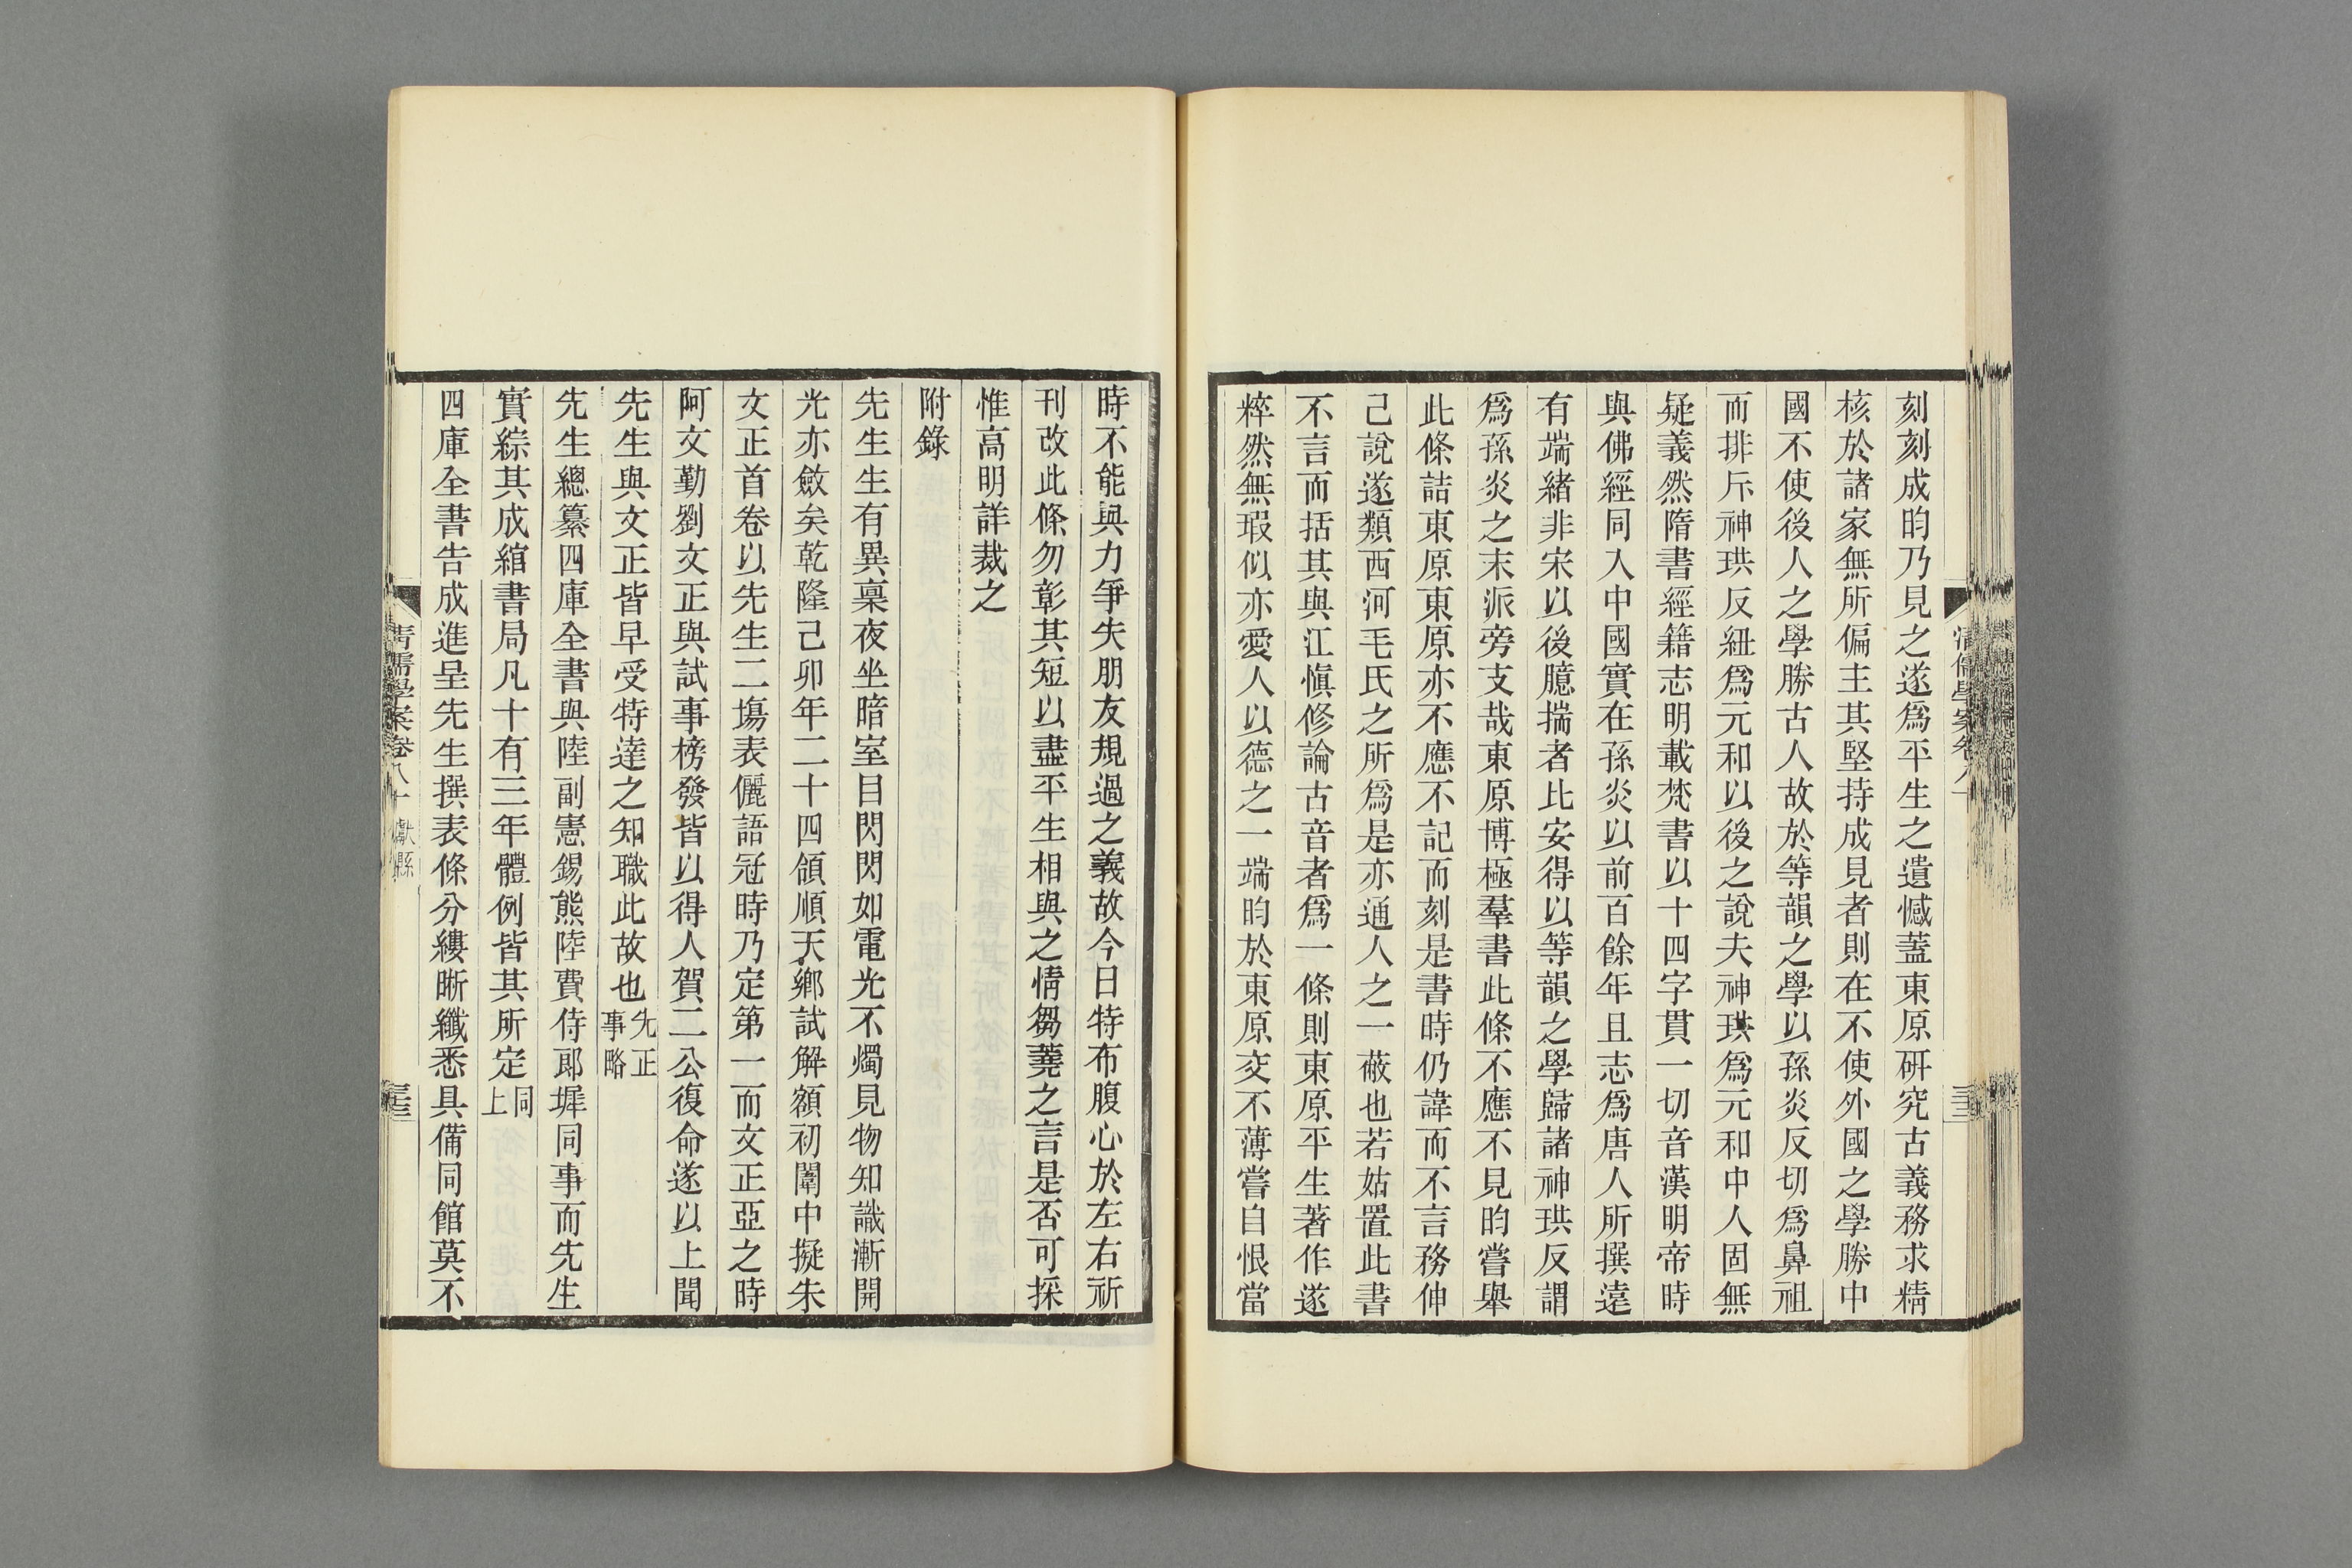 刻刻成昀乃見之遂爲平生之遺憾蓋東原研究古義務求精
核於諸家無所偏主其堅持成見者則在不使外國之學勝中
國不使後人之學勝古人故於等韻之學以孫炎反切爲鼻祖
而排斥神珙反紐爲元和以後之說夫神珙爲元和中人固無
疑義然隋書經籍志明載梵書以十四字貫一切音漢明帝時
與佛經同入中國實在孫炎以前百餘年且志爲唐人所撰遠
有端緒非宋以後臆揣者比安得以等韻之學歸諸神珙反謂
爲孫炎之末派旁支哉東原博極羣書此條不應不見昀嘗舉
此條詰東原東原亦不應不記而刻是書時仍諱而不言務伸
己說遂類西河毛氏之所爲是亦通人之一蔽也若姑置此書
不言而括其與江愼修論古音者爲一條則東原平生著作遂
粹然無瑕似亦愛人以德之一端昀於東原交不薄嘗自恨當
時不能與力爭失朋友規過之義故今日特布腹心於左右祈
刊改此條勿彰其短以盡平生相與之情芻蕘之言是否可採
惟高明詳裁之
附錄
先生生有異稟夜坐暗室目閃閃如電光不燭見物知識漸開
光亦斂矣乾隆己卯年二十四領順天鄉試解額初闈中擬朱
文正首卷以先生二場表儷語冠時乃定第一而文正亞之時
阿文勤劉文正與試事榜發皆以得人賀二公復命遂以上聞
先生與文正皆早受特達之知職此故也先正事略
先生總纂四庫全書與陸副憲錫熊陸費侍郎墀同事而先生
實綜其成綰書局凡十有三年體例皆其所定同上
四庫全書告成進呈先生撰表條分縷晰纖悉具備同館莫不
清儒學案卷八十 獻縣